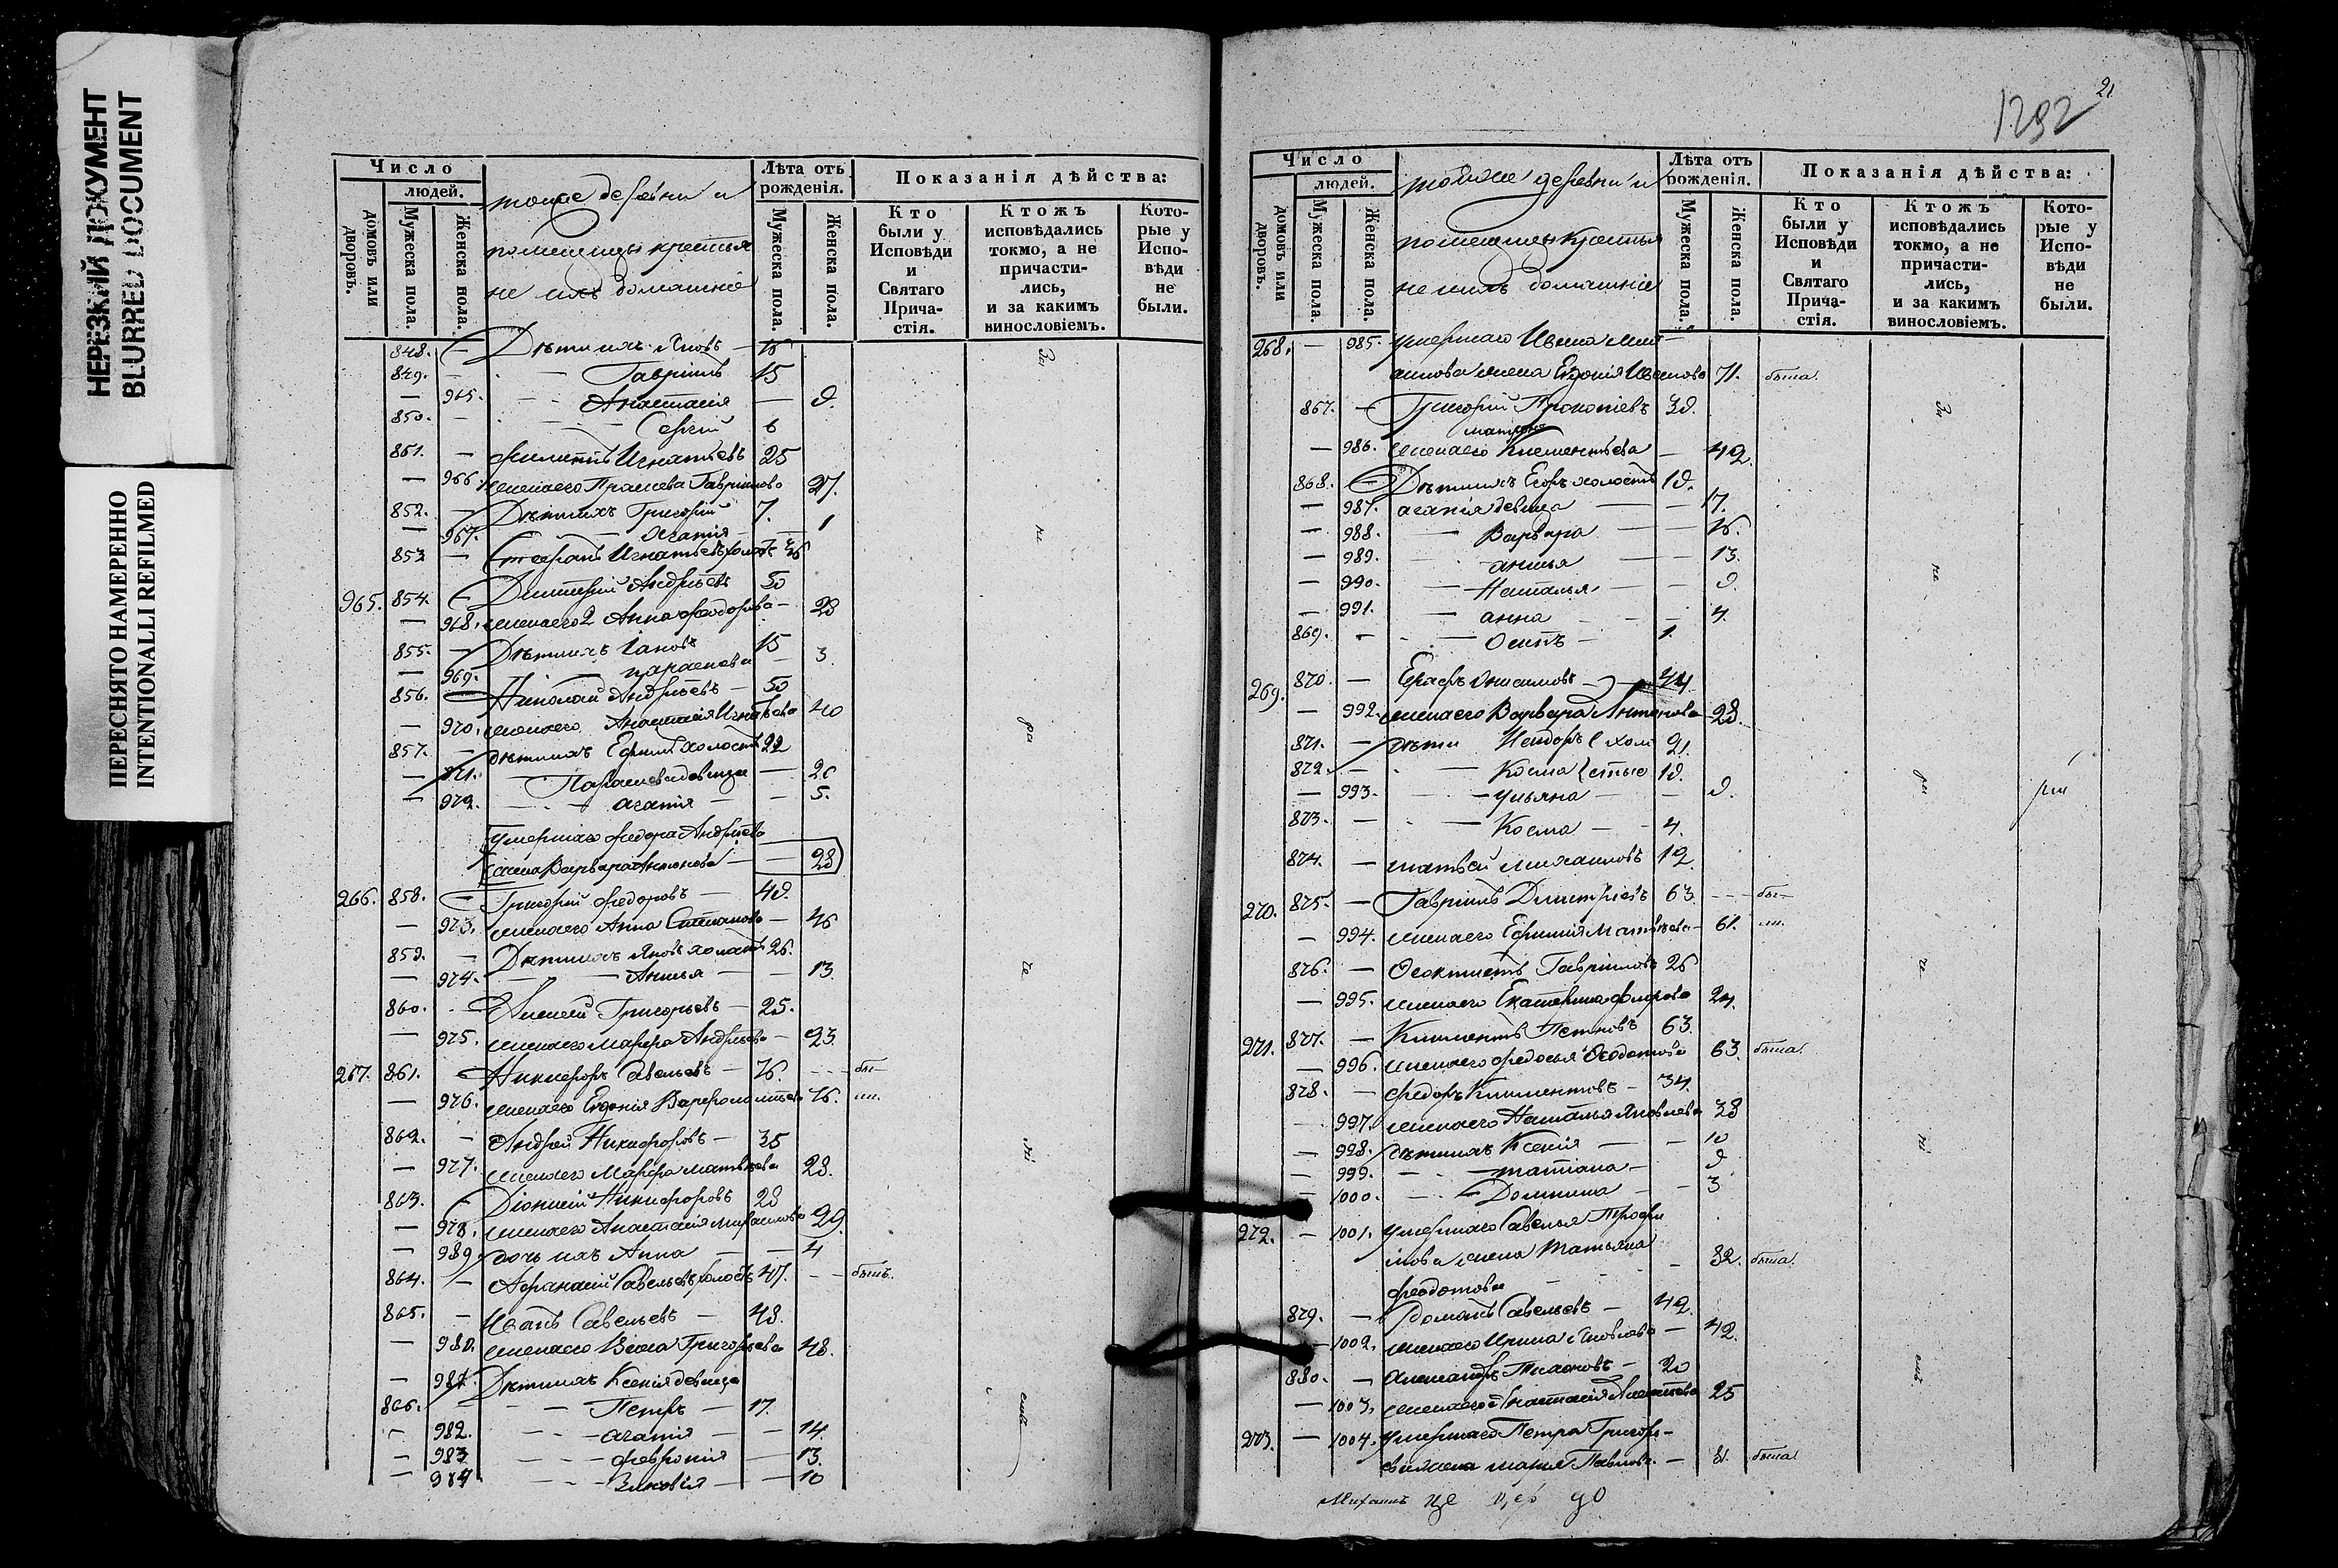 НЕРЕЗКИЙ ДОКУМЕНТ
BLURRED DOCUMENT
ПЕРЕСНЯТО НАМЕРЕННО
INTENTIONALLI REFILMED
Число
людей.
домовъ или дворовъ.
Мужеска пола.
Женска пола.
тоже деревни и
помещицы крестья
не ихъ домашніе
Лѣта отъ рожденія.
Мужеска пола.
Женска пола.
Показанія дѣйства:
Кто были у Исповѣди и Святаго Прича-стія.
Ктожъ исповѣдались токмо, а не причасти-лись, и за какимъ винословіемъ.
Кото-рые у Испо-вѣди не были.
848. — Дѣти ихъ Яковъ — 16
849. — Гавріилъ 15
— 965. Анастасія — 9.
850. — Сергій 6
851. — Филиппъ Игнатьевъ 25
— 966. жена его Праскева Гавріилова 27.
852. — Дѣти ихъ Григорій 7.
— 967. Агапія — 1
853 — Игнатьевъ холостъ 36
965. 854. Димитрій Андрѣевъ 50
— 968. жена его 2 Анна Феодорова — 28
855. — Дѣти ихъ Іаковъ 15
— 969. параскева — 3.
856. — Николай Андрѣевъ — 50
— 970. жена его Анастасія Игнатьева 40
857. — дѣти ихъ Ефимъ холостъ 22
— 971. Параскева девица — 20
— 972. — агапія — 5.
Умершаго Федора Андрѣева
жена Варвара Антонова — 28
266. 858. — Григорій Федоровъ — 49.
— 973. жена его Анна Степанова — 46
859. — Дѣти ихъ Яковъ холостъ 26.
— 974. — Анисья — 13
860. — Алексій Григорьевъ — 25.
— 975. жена его Марфа Андрѣева — 23.
267. 861. Никифоръ Савельевъ — 76. бы—
— 976. жена его Евдокія Варфоломѣева 76. ли.
862. — Андрей Никифоровъ — 35
— 977. жена его Марфа Матвѣева 28.
863. — Діонисій Никифоровъ 28
— 978. жена его Анастасія Михаилова 29.
— 989. дочь ихъ Анна — — 4
864. — Афанасій Савельевъ холостъ 47. — былъ.
865. — Иванъ Савельевъ — 48.
— 980. жена его Васса Григорьева 48.
— 981. Дѣти ихъ Ксенія девица
866. — Петръ — 17.
— 982. — агапія — — 14.
— 983. — феврония — 13.
— 984 — Зиновія — — 10
21
1292
Число
людей.
домовъ или дворовъ.
Мужеска пола.
Женска пола.
тойже деревни и
помещицы крестья
не ихъ домашніе
Лѣта отъ рожденія.
Мужеска пола.
Женска пола.
Показанія дѣйства:
Кто были у Исповѣди и Святаго Прича-стія.
Ктожъ исповѣдались токмо, а не причасти-лись, и за какимъ винословіемъ.
Кото-рые у Испо-вѣди не были.
268. — 985. умершаго Ивана Миха
аилова жена Евдокія Иванова 71. была.
867. — Григорій Прокопіевъ 39.
матрона
— 986. жена его Клементьева — 42.
868. — Дѣти ихъ Егоръ холостъ 19.
— 987. агапія девица — — 17.
— 988. — Варвара — — 16.
— 989. — анисья — 13.
— 990. — Наталья — — 9.
— 991. — анна — — 4.
869. — — Осипъ — 1.
269. 870. — Онисимовъ — 44.
— 992. жена его Варвара Антонова 28.
871. — дѣти холо 21.
872. — Косма стые 19.
— 993. — Ульяна — — 9.
873. — — Косма — 4.
874. — матвей михаиловъ 12
270. 875. — Гавріилъ Димитріевъ 63. — бы—
— 994. жена его Ефимія Матвѣева — 61. ли.
876. — Феоктистъ Гавріиловъ 26
— 995. жена его Екатерина флорова 24.
271. 877. — Климентъ 63.
— 996. жена его федосья Феодотова 63. была.
878. — федоръ Климентовъ — 34.
— 997. жена его Наталья Яковлева 38
— 998. дѣти ихъ Ксенія — — 10
— 999. — татіана — 9
— 1000. — Домникa — 3
272. — 1001. умершаго Савелья Трофи
мова жена Татьяна — 82. была.
феодотова
879. — Романъ Савельевъ — 42.
— 1002. жена его Ирина Яковлева — 42.
880. — александръ — 20
— 1003. жена его Анастасія 25
273. — 1004. умершаго Петра Григорь-
ева жена Павлова — 81. была.